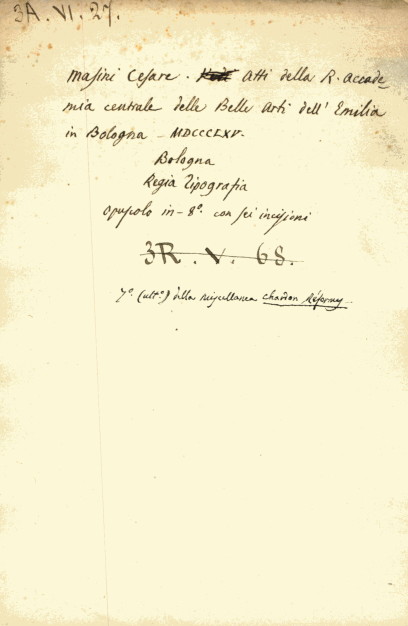 3A. VI. 27.
Masini Cesare. Atti della R. Accade-
mia centrale delle Belle Arti dell' Emilia
in Bologna - MDCCCLXV.
Bologna
Regia Tipografia
opuscolo in-8°. con sei incisioni
3R. V. 68.
7°. (ult°.) della miscellanea